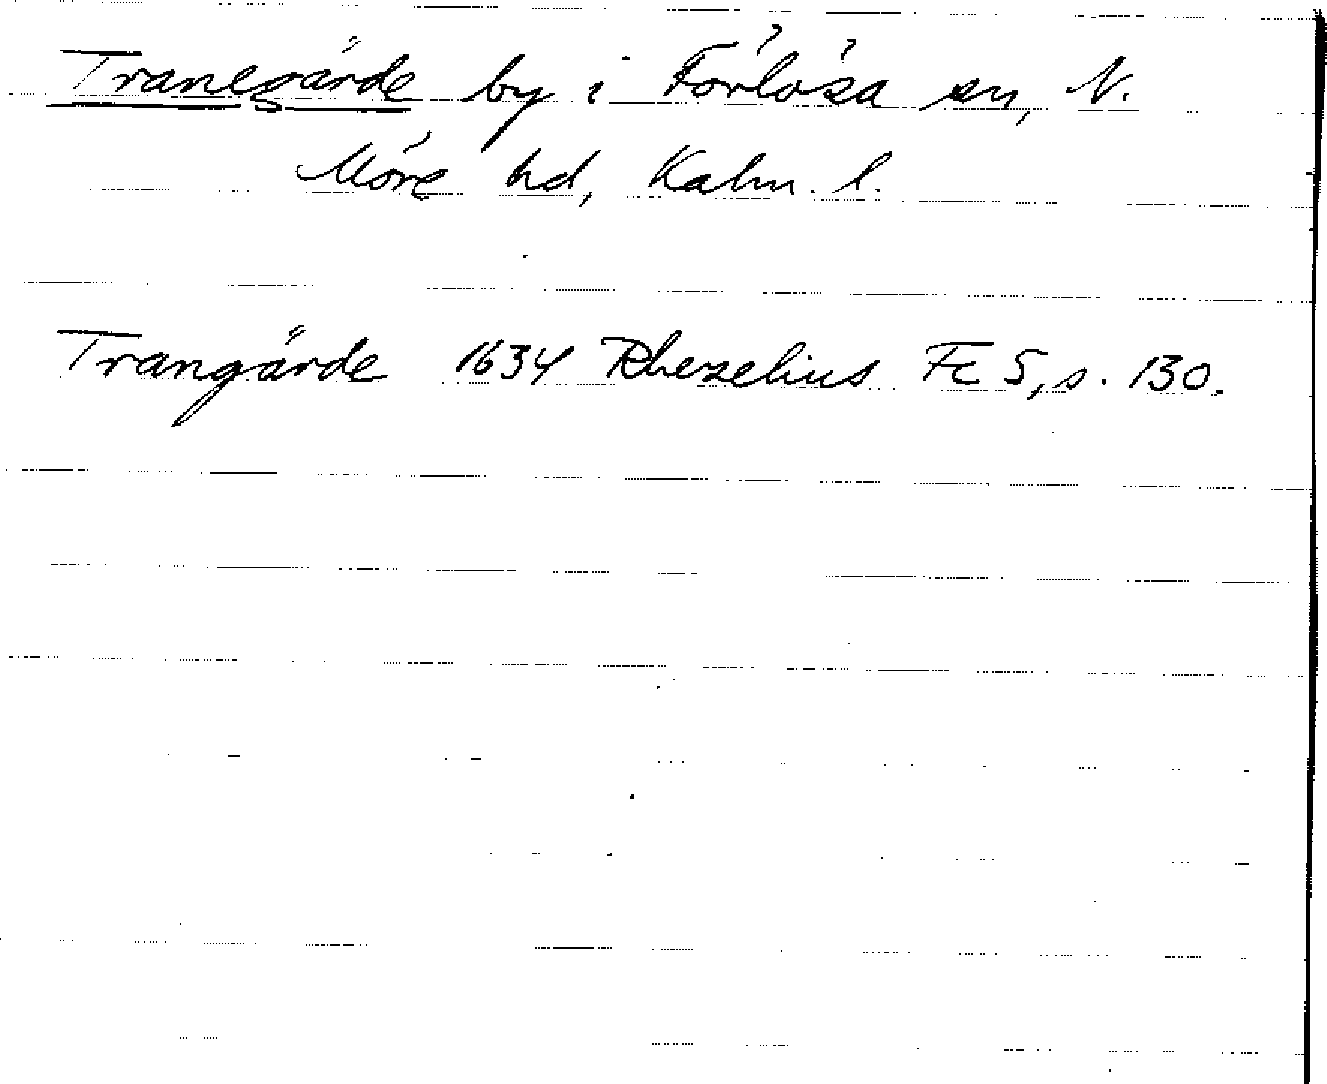 Tranegärde by i Förlösa sn, N.
Möre hd, Kalm. l.
Trangärde 1634 Rhezelius Fc 5, s. 130.